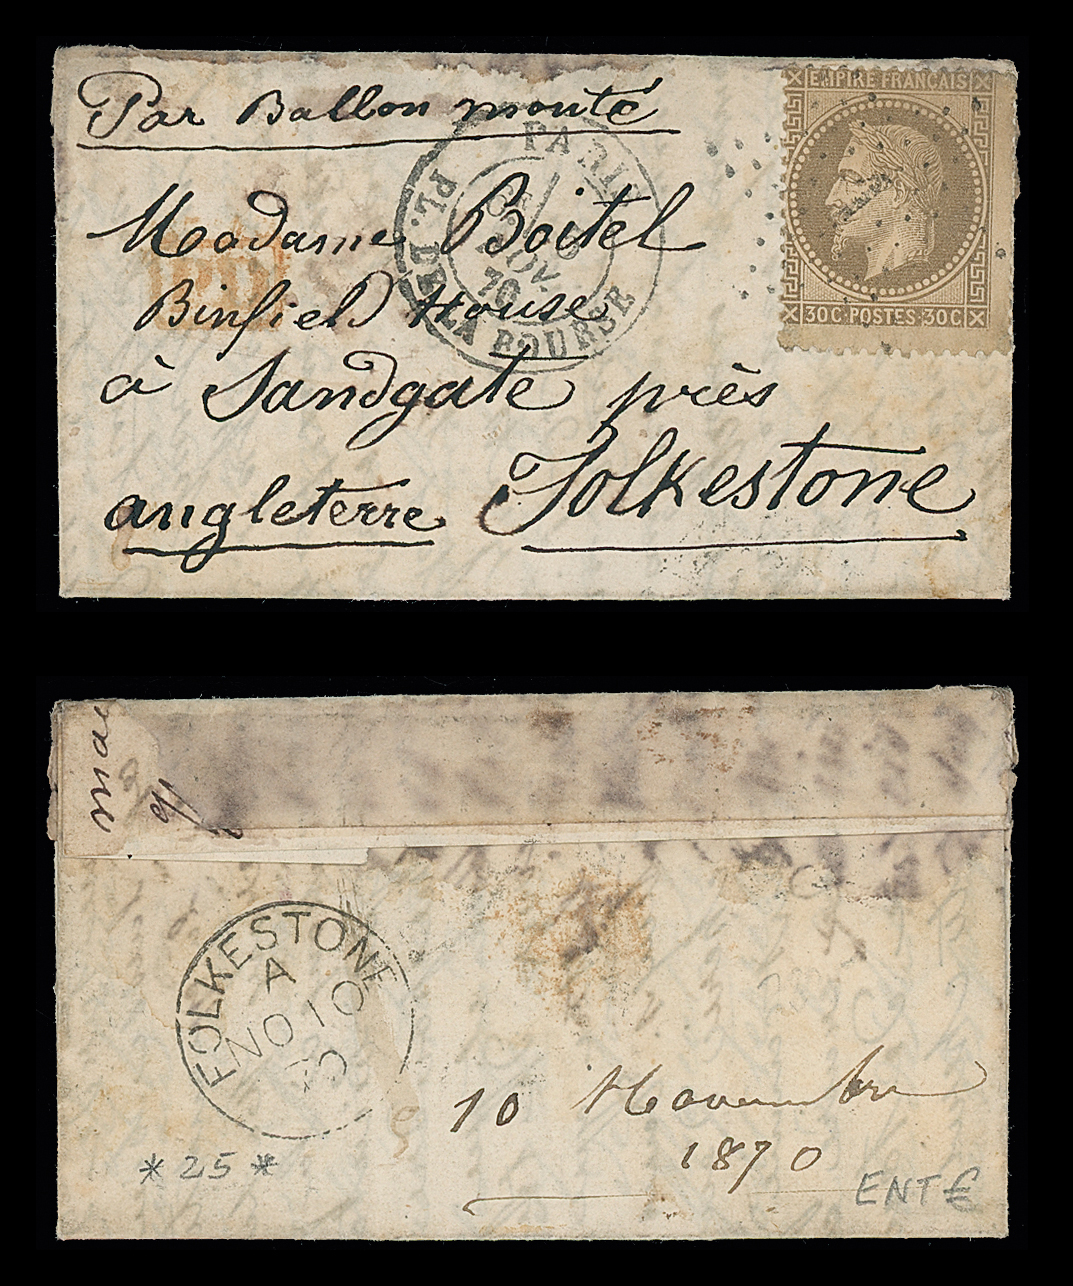 Par Ballon monté
EMPIRE FRANÇAIS
30C·POSTES·30C
PARIS
NOV.
70
PL. DE LA BOURSE
PD
Madame Boitel
Binfield House
à Sandgate près
angleterre Folkestone
FOLKESTONE
A
NO 10
70
10 Novembre
1870
* 25 *
ENT€